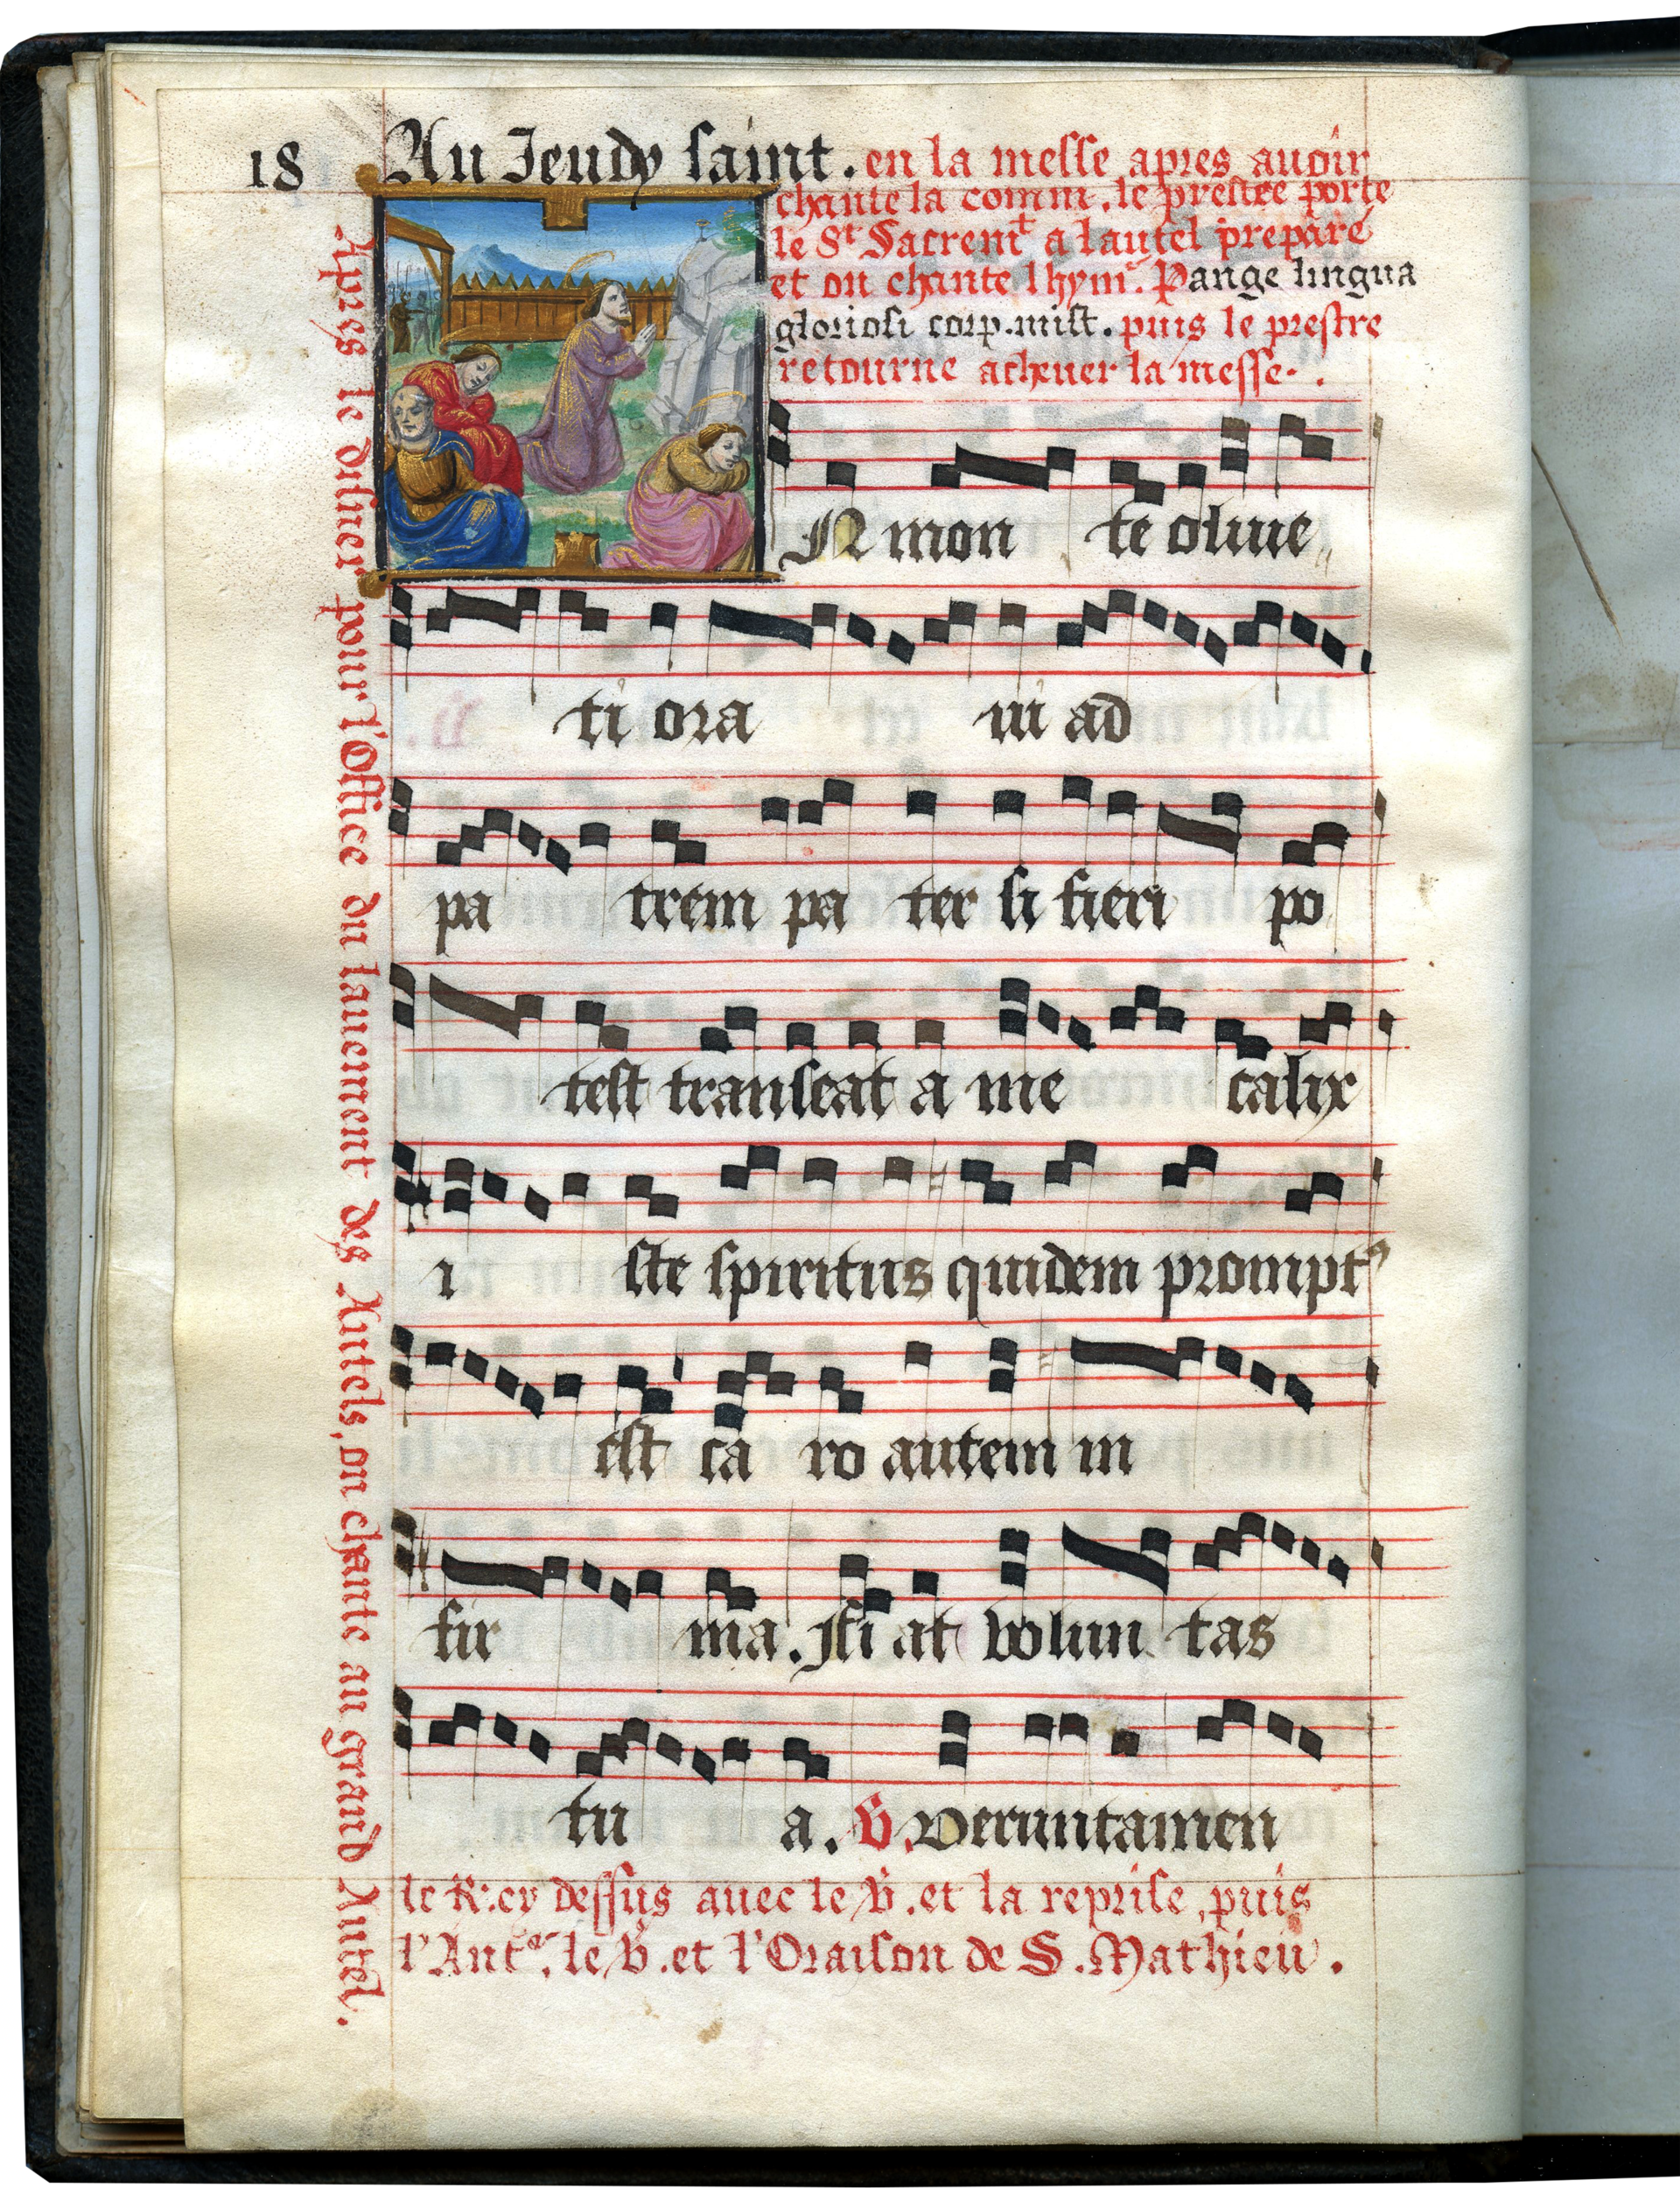 18 Au Jeudy saint. en la messe apres auoir
chante la comm. le prestre porte
le St Sacremt a lautel prepare
et on chante lhym. Pange lingua
gloriosi corp. mist. puis le prestre
retourne acheuer la messe.
N mon te oliue
ti ora ui ad
pa trem pa ter si fieri po
test transeat a me calix
i ste spiritus quidem prompt⁹
est ca ro autem in
fir ma. fi at volun tas
tu a. V. Veruntamen
le R. cy dessus auec le V. et la reprise, puis
l'Ante. le V. et l'Oraison de S. Mathieu.
Apres le disner pour l'Office du lauement des Autels, on chante au grand Autel.